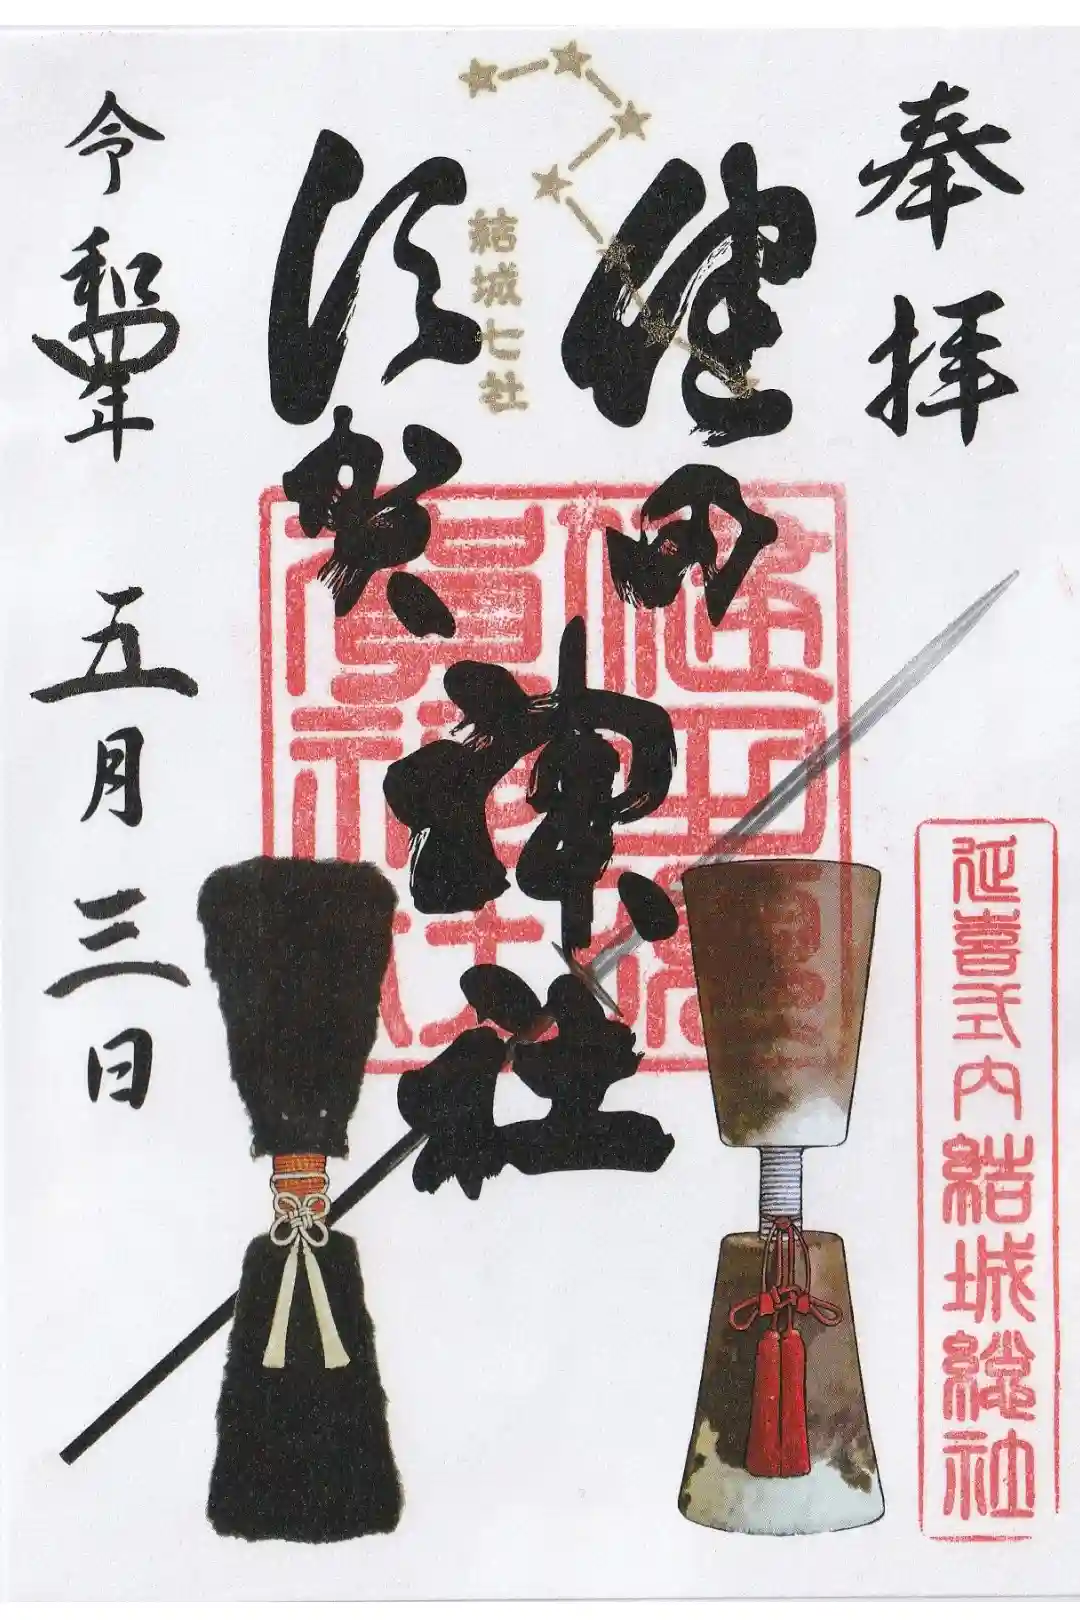 奉拝
延喜式内結城総社
健田
須賀
神社
結城七社
健田須
賀神社
令和四年 五月三日